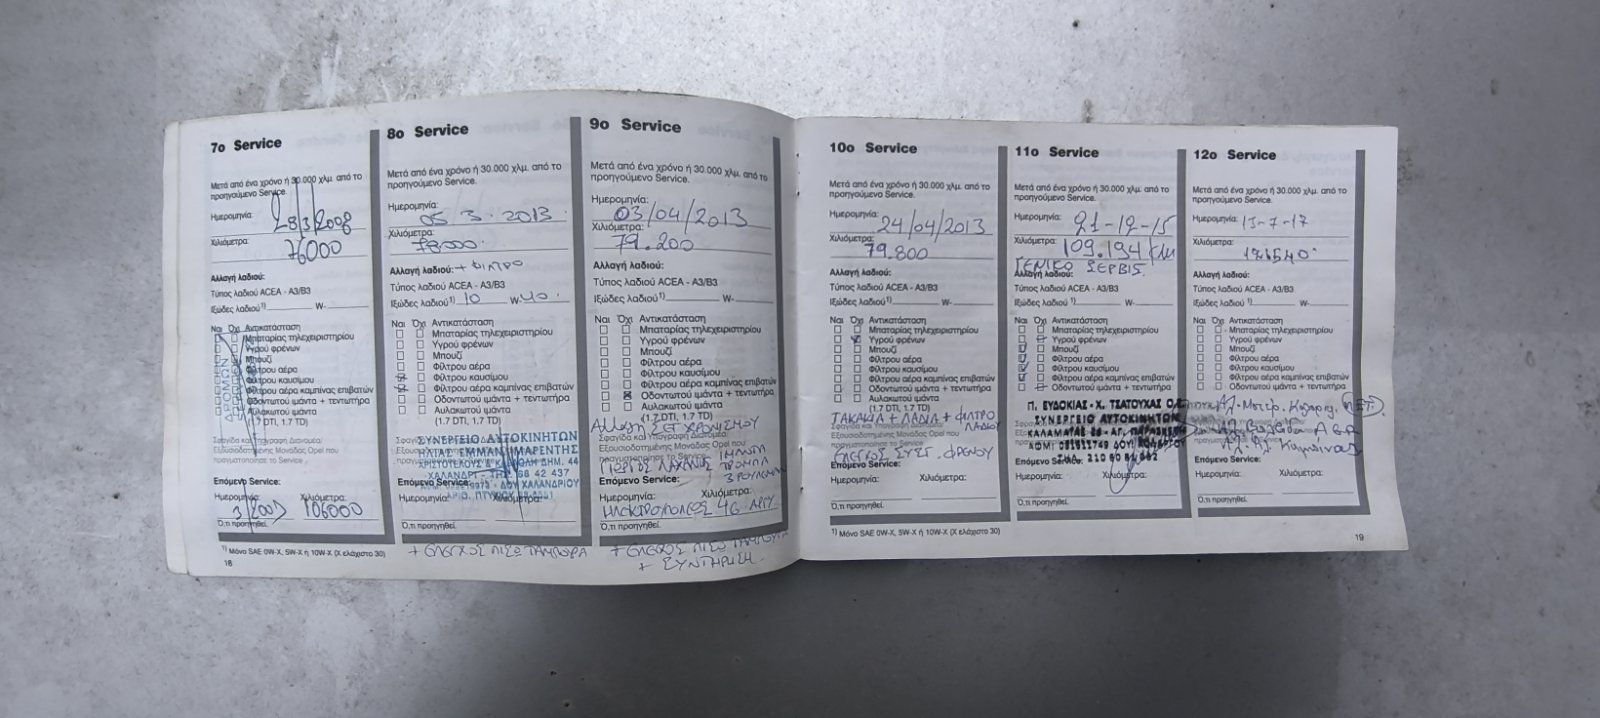 7ο Service
Μετά από ένα χρόνο ή 30.000 χλμ. από το
προηγούμενο Service.
Ημερομηνία:
28/3/2008
Χιλιόμετρα:
76000
Αλλαγή λαδιού:
Τύπος λαδιού ACEA - A3/B3
Ιξώδες λαδιού¹⁾ W-
Ναι Όχι Αντικατάσταση
Μπαταρίας τηλεχειριστηρίου
Υγρού φρένων
Μπουζί
Φίλτρου αέρα
Φίλτρου καυσίμου
Φίλτρου αέρα καμπίνας επιβατών
Οδοντωτού ιμάντα + τεντωτήρα
Αυλακωτού ιμάντα
(1.7 DTI, 1.7 TD)
Σφραγίδα και Υπογραφή Διανομέα/
Εξουσιοδοτημένης Μονάδας Opel που
πραγματοποίησε το Service
Επόμενο Service:
Ημερομηνία: Χιλιόμετρα:
106000
Ό,τι προηγηθεί.
¹⁾ Μόνο SAE 0W-X, 5W-X ή 10W-X (X ελάχιστο 30)
18
8ο Service
Μετά από ένα χρόνο ή 30.000 χλμ. από το
προηγούμενο Service.
Ημερομηνία:
05.3.2013.
Χιλιόμετρα:
78000.
Αλλαγή λαδιού: + ΦΙΛΤΡΟ
Τύπος λαδιού ACEA - A3/B3
Ιξώδες λαδιού¹⁾ 10 W-40.
Ναι Όχι Αντικατάσταση
Μπαταρίας τηλεχειριστηρίου
Υγρού φρένων
Μπουζί
Φίλτρου αέρα
Φίλτρου καυσίμου
Φίλτρου αέρα καμπίνας επιβατών
Οδοντωτού ιμάντα + τεντωτήρα
Αυλακωτού ιμάντα
(1.7 DTI, 1.7 TD)
ΣΥΝΕΡΓΕΙΟ ΑΥΤΟΚΙΝΗΤΩΝ
ΗΛΙΑΣ ΕΜΜΑΝ. ΜΑΡΕΝΤΗΣ
ΑΡΙΣΤΟΤΕΛΟΥΣ & ΔΗΜ. 44
ΧΑΛΑΝΔΡΙ 68 42 437
ΔΟΥ ΧΑΛΑΝΔΡΙΟΥ
Επόμενο Service:
Ημερομηνία: Χιλιόμετρα:
Ό,τι προηγηθεί.
+ ΕΛΕΓΧΟΣ ΠΙΣΩ ΤΑΜΠΟΥΡΑ
9ο Service
Μετά από ένα χρόνο ή 30.000 χλμ. από το
προηγούμενο Service.
Ημερομηνία:
03/04/2013
Χιλιόμετρα:
79.200
Αλλαγή λαδιού:
Τύπος λαδιού ACEA - A3/B3
Ιξώδες λαδιού¹⁾ W-
Ναι Όχι Αντικατάσταση
Μπαταρίας τηλεχειριστηρίου
Υγρού φρένων
Μπουζί
Φίλτρου αέρα
Φίλτρου καυσίμου
Φίλτρου αέρα καμπίνας επιβατών
Οδοντωτού ιμάντα + τεντωτήρα
Αυλακωτού ιμάντα
(1.7 DTI, 1.7 TD)
Αλλαγή ΣΕΤ ΧΡΟΝΙΣΜΟΥ
Σφραγίδα και Υπογραφή Διανομέα/
Εξουσιοδοτημένης Μονάδας Opel που
πραγματοποίησε το Service
Επόμενο Service:
Ημερομηνία: Χιλιόμετρα:
Ό,τι προηγηθεί.
+ ΕΛΕΓΧΟΣ ΠΙΣΩ ΤΑΜΠΟΥΡΑ
+ ΣΥΝΤΗΡΗΣΗ
10ο Service
Μετά από ένα χρόνο ή 30.000 χλμ. από το
προηγούμενο Service.
Ημερομηνία:
24/04/2013
Χιλιόμετρα:
79.800
Αλλαγή λαδιού:
Τύπος λαδιού ACEA - A3/B3
Ιξώδες λαδιού¹⁾ W-
Ναι Όχι Αντικατάσταση
Μπαταρίας τηλεχειριστηρίου
Υγρού φρένων
Μπουζί
Φίλτρου αέρα
Φίλτρου καυσίμου
Φίλτρου αέρα καμπίνας επιβατών
Οδοντωτού ιμάντα + τεντωτήρα
Αυλακωτού ιμάντα
(1.7 DTI, 1.7 TD)
ΤΑΚΑΚΙΑ + ΛΑΔΙΑ + ΦΙΛΤΡΟ
ΛΑΔΙΟΥ
Σφραγίδα και Υπογραφή Διανομέα/
Εξουσιοδοτημένης Μονάδας Opel που
πραγματοποίησε το Service
ΕΛΕΓΧΟΣ ΣΥΣΤ. ΦΡΕΝΟΥ
Επόμενο Service:
Ημερομηνία: Χιλιόμετρα:
Ό,τι προηγηθεί.
¹⁾ Μόνο SAE 0W-X, 5W-X ή 10W-X (X ελάχιστο 30)
11ο Service
Μετά από ένα χρόνο ή 30.000 χλμ. από το
προηγούμενο Service.
Ημερομηνία:
21-12-15
Χιλιόμετρα:
109.194 Km
ΓΕΝΙΚΟ ΣΕΡΒΙΣ.
Αλλαγή λαδιού:
Τύπος λαδιού ACEA - A3/B3
Ιξώδες λαδιού¹⁾ W-
Ναι Όχι Αντικατάσταση
Μπαταρίας τηλεχειριστηρίου
Υγρού φρένων
Μπουζί
Φίλτρου αέρα
Φίλτρου καυσίμου
Φίλτρου αέρα καμπίνας επιβατών
Οδοντωτού ιμάντα + τεντωτήρα
Π. ΕΥΔΟΚΙΑΣ - Χ. ΤΣΑΤΟΥΧΑΣ Ο.Ε.
ΣΥΝΕΡΓΕΙΟ ΑΥΤΟΚΙΝΗΤΩΝ
ΚΑΛΑΜΑΤΑΣ ΑΓ. ΠΑΡΑΣΚΕΥΗ
Επόμενο Service:
Ημερομηνία: Χιλιόμετρα:
Ό,τι προηγηθεί.
12ο Service
Μετά από ένα χρόνο ή 30.000 χλμ. από το
προηγούμενο Service.
Ημερομηνία:
13-7-17
Χιλιόμετρα:
Αλλαγή λαδιού:
Τύπος λαδιού ACEA - A3/B3
Ιξώδες λαδιού¹⁾ W-
Ναι Όχι Αντικατάσταση
Μπαταρίας τηλεχειριστηρίου
Υγρού φρένων
Μπουζί
Φίλτρου αέρα
Φίλτρου καυσίμου
Φίλτρου αέρα καμπίνας επιβατών
Οδοντωτού ιμάντα + τεντωτήρα
Επόμενο Service:
Ημερομηνία: Χιλιόμετρα:
Ό,τι προηγηθεί.
19